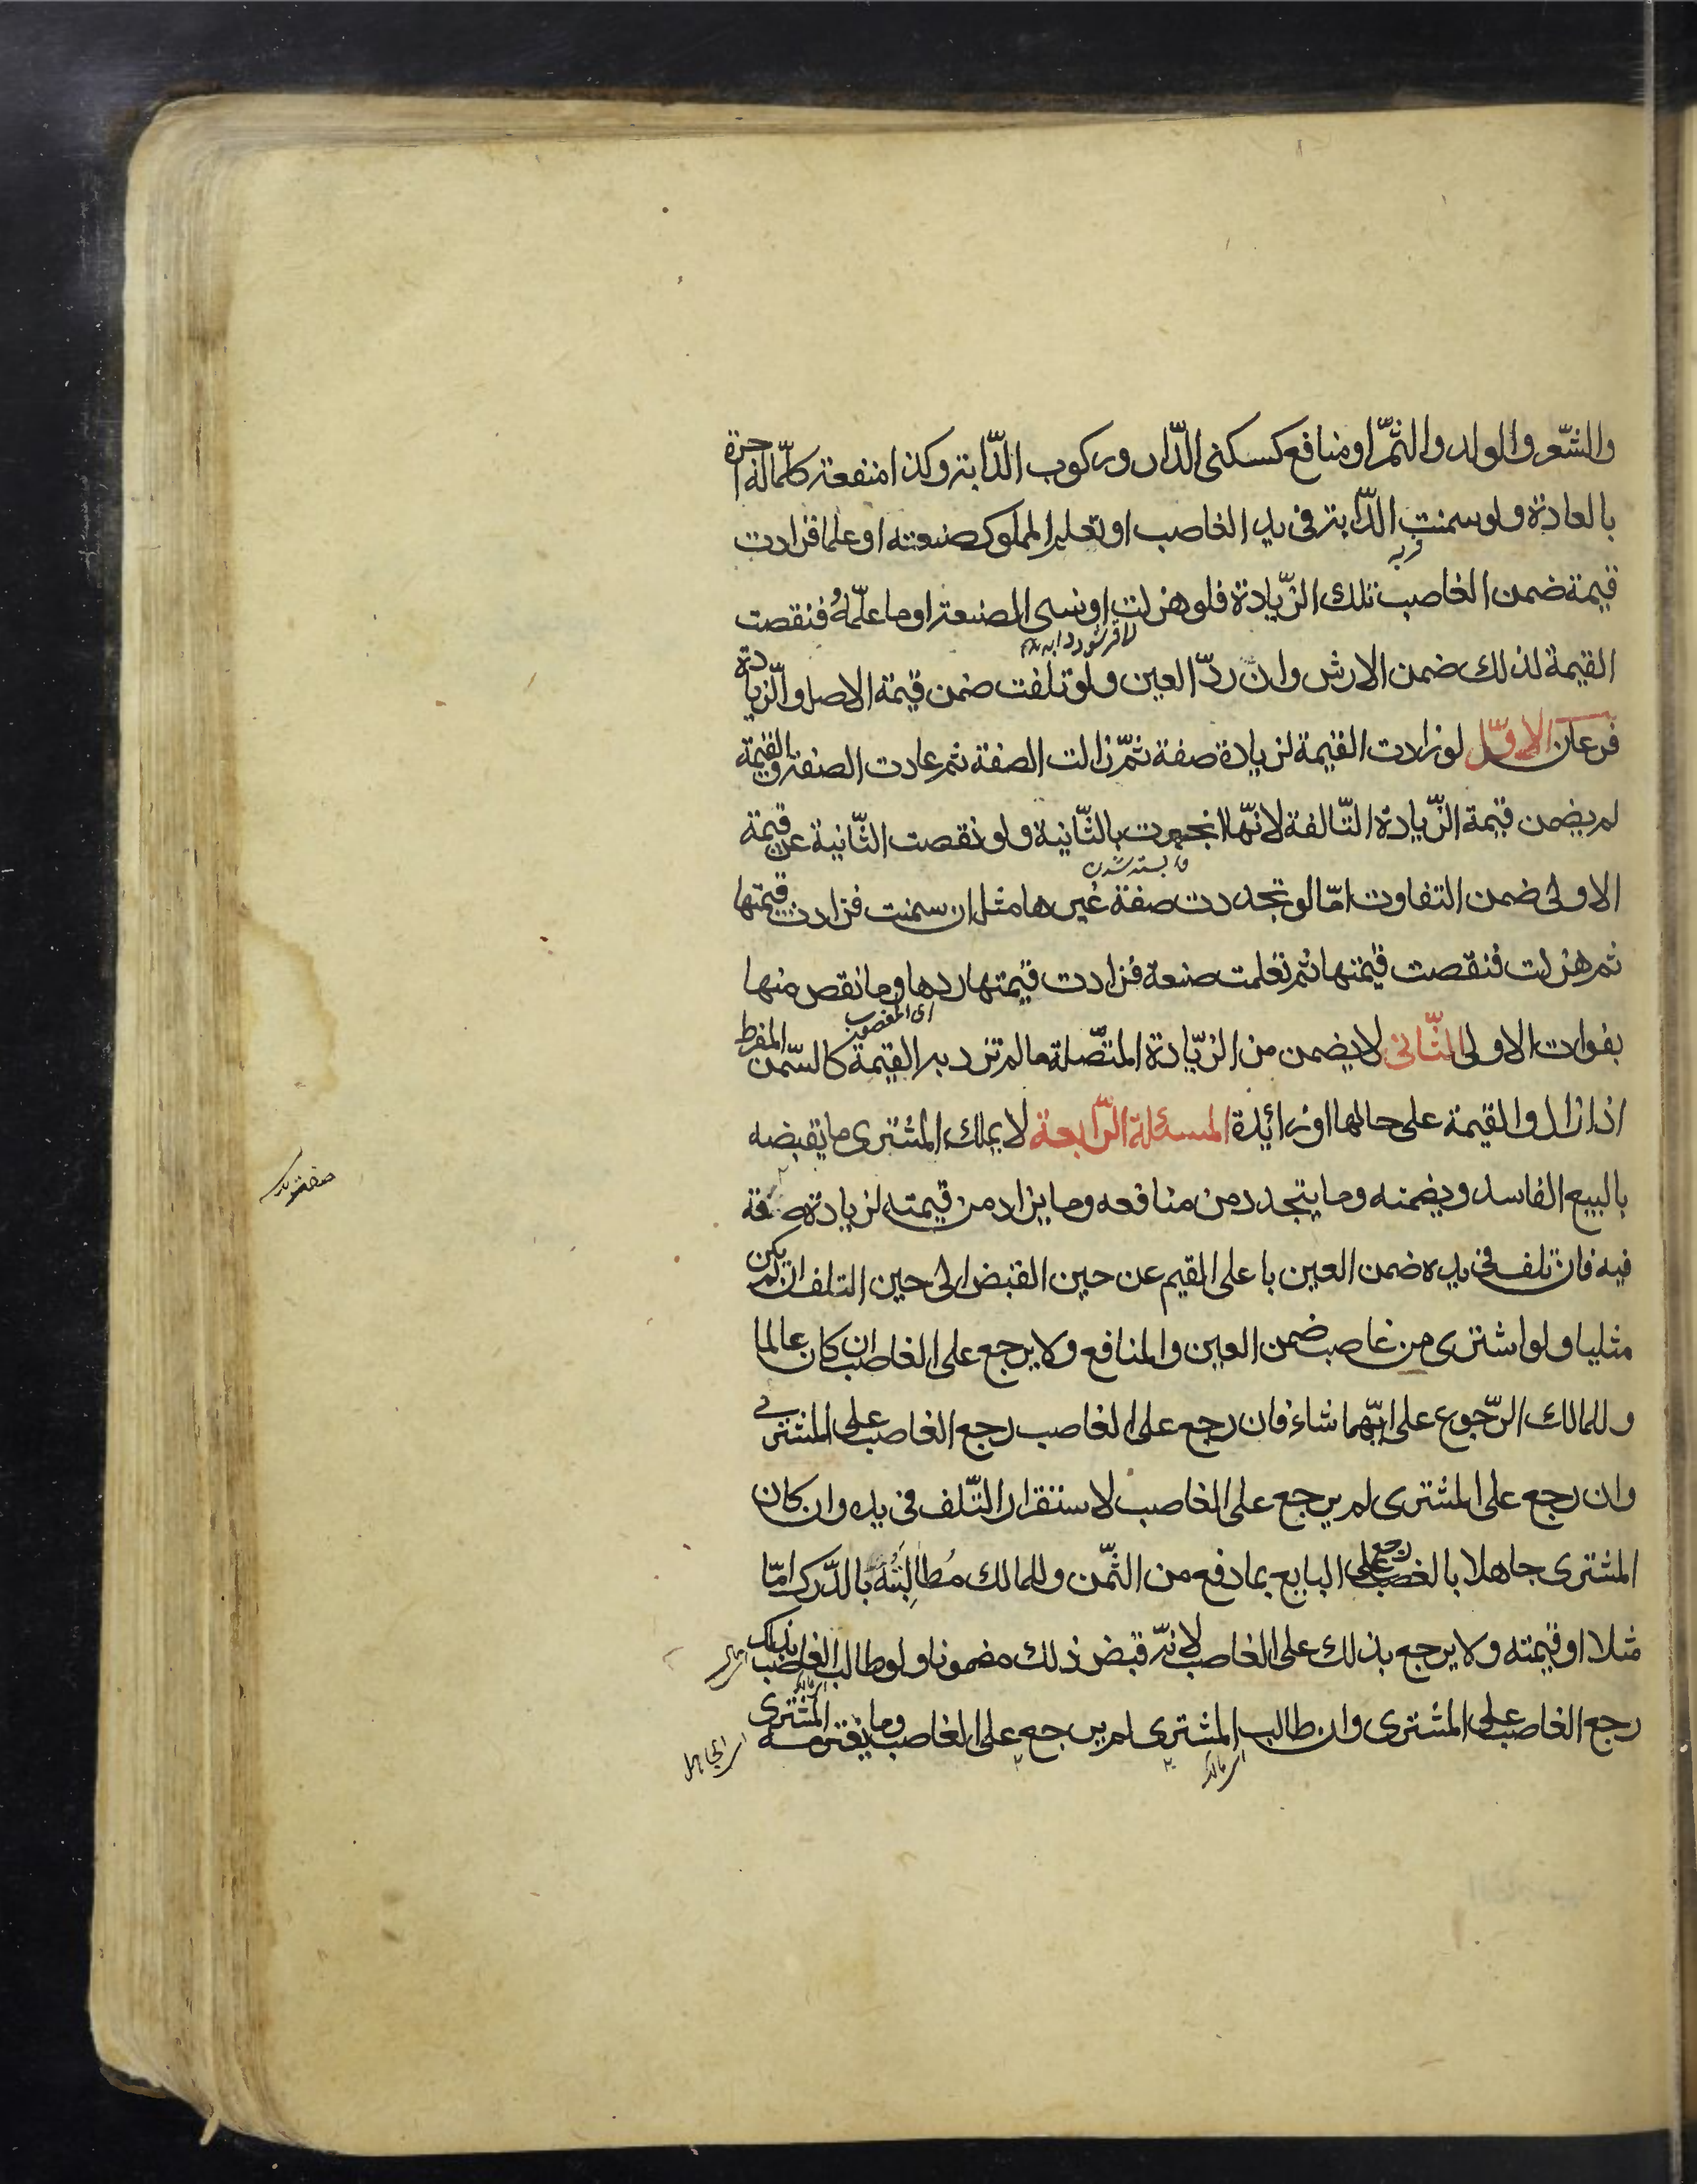 والشّعر والولد والثّمر او منافع كسكنى الدّار وركوب الدّابة وكذا منفعة كلّما له اجرة
بالعادة ولو سمنت الدّابة فى يد الغاصب او تعلم المملوك صنعته او علما فزادت
فربه
قيمة ضمن الغاصب تلك الزّيادة فلو هزلت او نسى الصنعة او ما علّمهُ فنقصت
القيمة لذلك ضمن الارش وان ردّ العين ولو تلفت ضمن قيمة الاصل والزيادة
فرعان الاوّل لو زادت القيمة لزيادة صفة ثمّ زالت الصفة ثم عادت الصفة والقيمة
لم يضمن قيمة الزّيادة التّالفة لانّها انجبرت بالثّانية ولو نقصت الثّانية عن قيمة
الاولى ضمن التفاوت امّا لو تجددت صفة غيرها مثل ان سمنت فزادت قيمتها
ثم هزلت فنقصت قيمتها ثم تعلمت صنعة فزادت قيمتها ردها وما نقص منها
اى المغصوب
بفوات الاولى الثّانى لا يضمن من الزّيادة المتّصلة ما لم تزد به القيمة كالسّمن المفرط
اذا زال والقيمة على حالها او زائدة المسئلة الرّابعة لا يملك المشترى ما يقبضه
بالبيع الفاسد ويضمنه وما يتجدد من منافعه وما يزاد من قيمته لزيادة صفة
فيه فان تلف فى يده ضمن العين باعلى القيم عن حين القبض الى حين التلف ان لم يكن
مثليا ولو اشترى من غاصب ضمن العين والمنافع ولا يرجع على الغاصب ان كان عالما
وللمالك الرّجوع على ايّهما شاء فان رجع على الغاصب رجع الغاصب على المشترى
وان رجع على المشترى لم يرجع على الغاصب لاستقرار التّلف فى يده وان كان
المشترى جاهلا بالغصب رجع على البايع بما دفع من الثّمن وللمالك مُطالبَتُهُ بالدّرك امّا
مثلا او قيمته ولا يرجع بذلك على الغاصب لانّه قبض ذلك مضمونا ولو طالب الغاصب بذلك
رجع الغاصب على المشترى وان طالب المشترى لم يرجع على الغاصب وما يغترمه المشترى